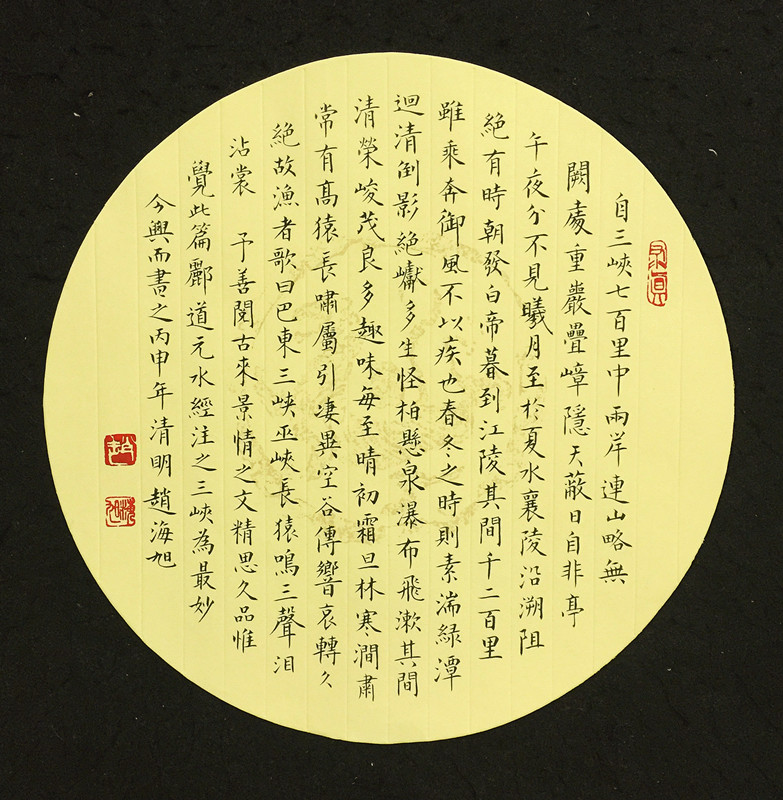 自三峽七百里中兩岸連山略無
闕處重巖疊嶂隱天蔽日自非亭
午夜分不見曦月至於夏水襄陵沿溯阻
絕有時朝發白帝暮到江陵其間千二百里
雖乘奔御風不以疾也春冬之時則素湍綠潭
迴清倒影絕巘多生怪柏懸泉瀑布飛漱其間
清榮峻茂良多趣味每至晴初霜旦林寒澗肅
常有高猿長嘯屬引凄異空谷傳響哀轉久
絕故漁者歌曰巴東三峽巫峽長猿鳴三聲泪
沾裳 予善閱古來景情之文精思久品惟
覺此篇酈道元水經注之三峽為最妙
今興而書之丙申年清明趙海旭